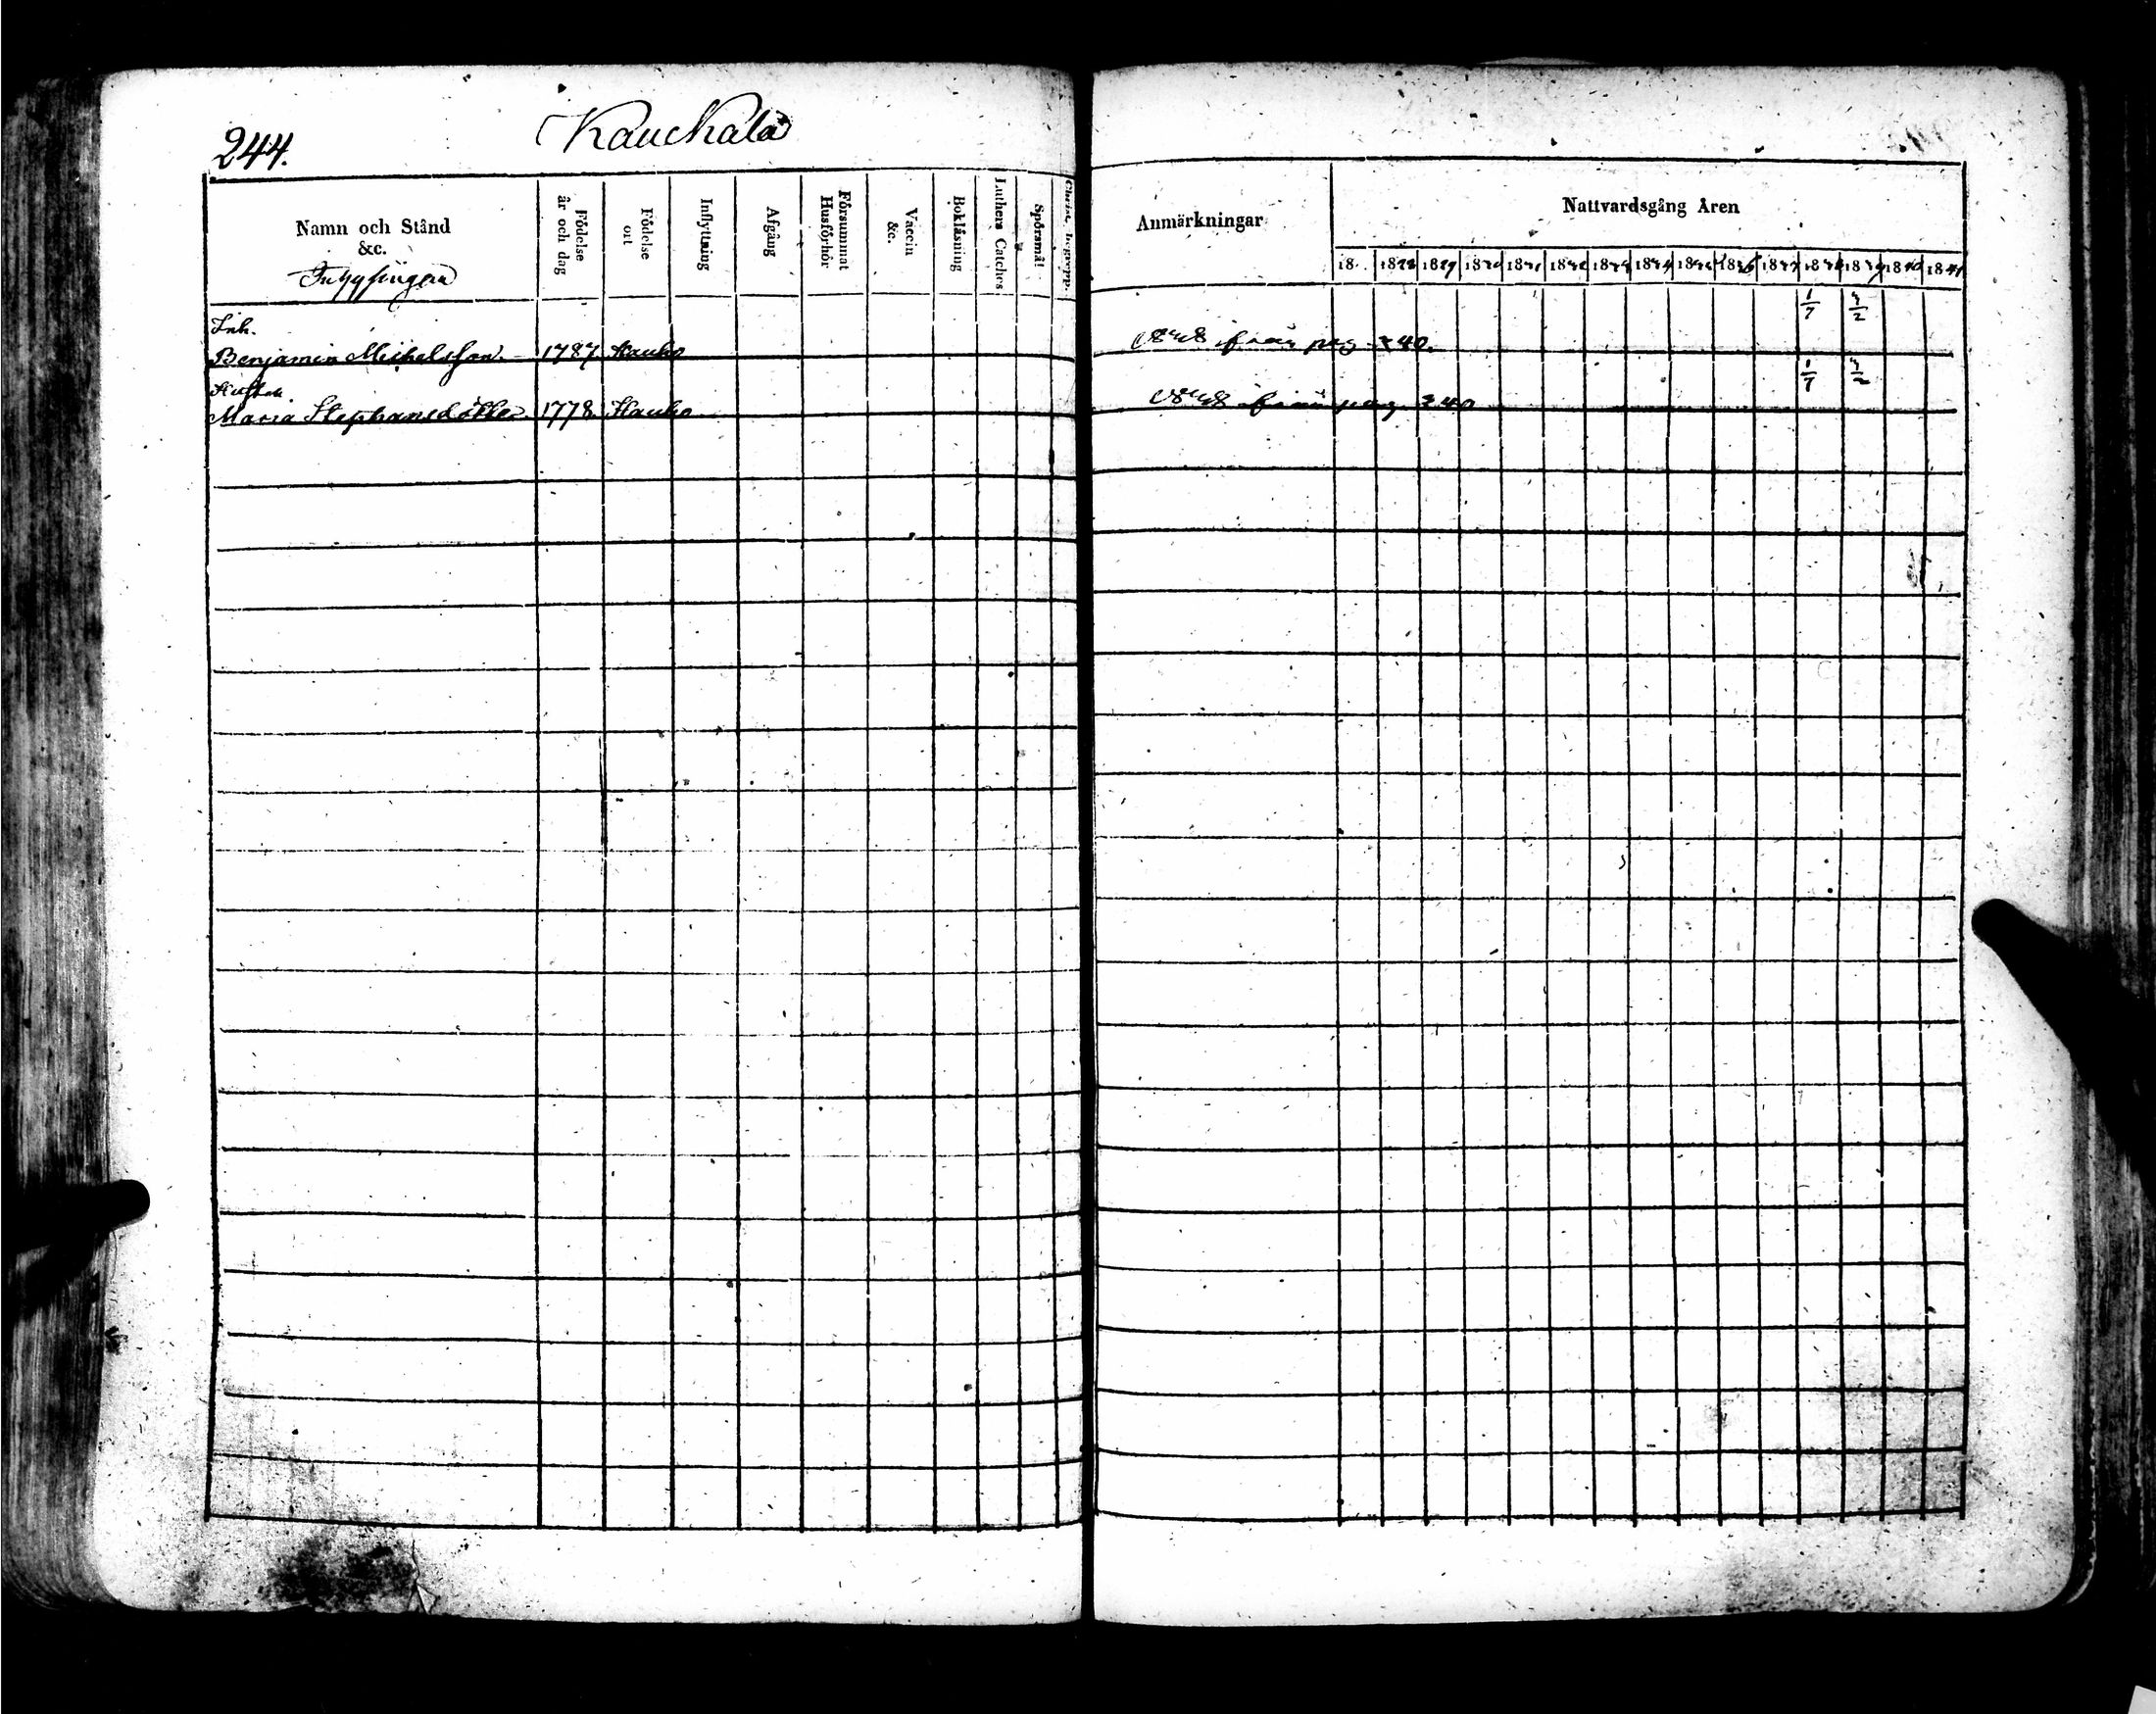 244.
Kauckala
Namn och Stånd
&c.
Födelse
år och dag
Födelse
ort
Inflyttning
Afgång
Försummat
Husförhör
Vaccin
&c.
Boklåsning
Luthers Catches
Spörsmål
Christ. begrepp.
Anmärkningar
Nattvardsgång Åren
18 1828 1829 1830 1831 1832 1833 1834 1835 1836 1837 1838 1839 1840 1841
Inh.
Benjamin Michelsson. 1787. Kauko 1838 från pag 240. 1/7 3/2
Hustr.
Maria Stephansdotter 1778. Kauko 1838 från pag 240 1/7 3/2